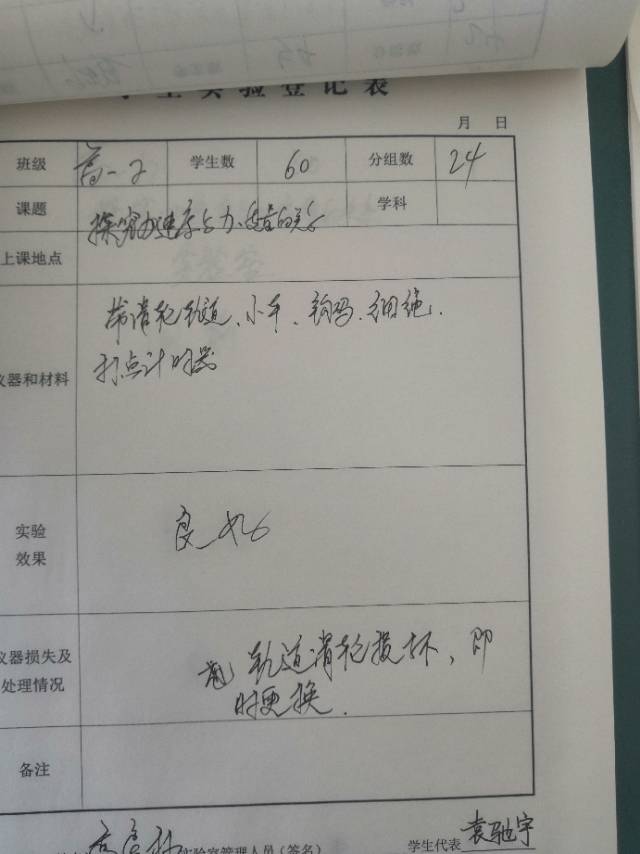 学生实验登记表
月 日
班级 高一2 学生数 60 分组数 24
课题 探究加速度与力、质量的关系 学科
上课地点
仪器和材料 带滑轮轨道、小车、钩码、细绳、
打点计时器
实验
效果
良好
仪器损失及
处理情况
轨道滑轮损坏，即
时更换.
备注
实验室管理人员(签名) 学生代表 袁驰宇